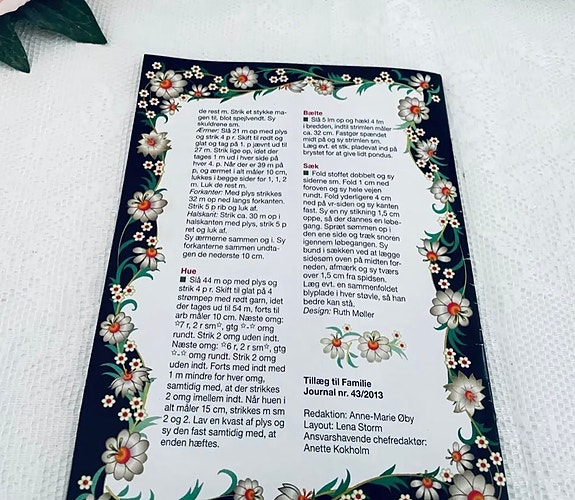 de rest m. Strik et stykke ma-
gen til, blot spejlvendt. Sy
skuldrene sm.
Ærmer: Slå 21 m op med plys
og strik 4 p r. Skift til rødt og
glat og tag på 1. p jævnt ud til
27 m. Strik lige op, idet der
tages 1 m ud i hver side på
hver 4. p. Når der er 39 m på
p, og ærmet i alt måler 10 cm,
lukkes i begge sider for 1, 1, 2
m. Luk de rest m.
Forkanter: Med plys strikkes
32 m op ned langs forkanten.
Strik 5 p rib og luk af.
Halskant: Strik ca. 30 m op i
halskanten med plys, strik 5 p
ret og luk af.
Sy ærmerne sammen og i. Sy
forkanterne sammen undta-
gen de nederste 10 cm.
Hue
■ Slå 44 m op med plys og
strik 4 p r. Skift til glat på 4
strømpep med rødt garn, idet
der tages ud til 54 m, forts til
arb måler 10 cm. Næste omg:
☆7 r, 2 r sm☆, gtg ☆-☆ omg
rundt. Strik 2 omg uden indt.
Næste omg: ☆6 r, 2 r sm☆,
gtg ☆-☆ omg rundt. Strik 2 omg
uden indt. Forts med indt med
1 m mindre for hver omg,
samtidig med, at der strikkes
2 omg imellem indt. Når huen i
alt måler 15 cm, strikkes m sm
2 og 2. Lav en kvast af plys og
sy den fast samtidig med, at
enden hæftes.
Bælte
■ Slå 5 lm op og hækl 4 fm
i bredden, indtil strimlen måler
ca. 32 cm. Fastgør spændet
midt på og sy strimlen sm.
Læg evt. et stk. pladevat ind på
brystet for at give lidt pondus.
Sæk
■ Fold stoffet dobbelt og sy
siderne sm. Fold 1 cm ned
foroven og sy hele vejen
rundt. Fold yderligere 4 cm
ned på vr-siden og sy kanten
fast. Sy en ny stikning 1,5 cm
oppe, så der dannes en løbe-
gang. Spræt sømmen op i
den ene side og træk snoren
igennem løbegangen. Sy
bund i sækken ved at lægge
sidesøm oven på midten for-
neden, afmærk og sy tværs
over 1,5 cm fra spidsen.
Læg evt. en sammenfoldet
blyplade i hver støvle, så han
bedre kan stå.
Design: Ruth Møller
Tillæg til Familie
Journal nr. 43/2013
Redaktion: Anne-Marie Øby
Layout: Lena Storm
Ansvarshavende chefredaktør:
Anette Kokholm